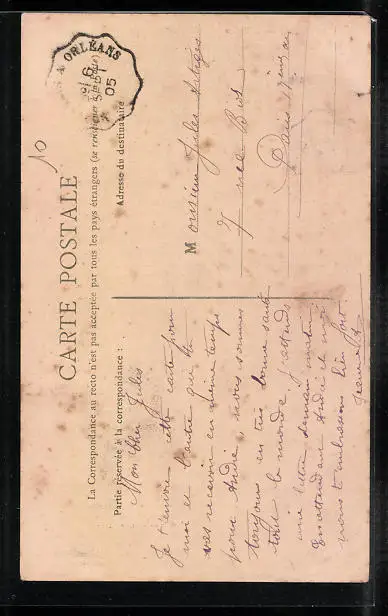 ORLÉANS
6
05
10
CARTE POSTALE
La Correspondance au recto n'est pas acceptée par tous les pays étrangers (se renseigner à la Poste)
Partie réservée à la correspondance :
Adresse du destinataire
Mon Cher Jules
Je t'envoie cette carte pour
moi et l'autre que tu
vas recevoir en même temps
pour André, nous sommes
toujours en très bonne santé
tout le monde j'attends
une lettre demain matin
En attendant André et moi
nous t'embrassons bien fort
Monsieur Jules
7 rue
Paris